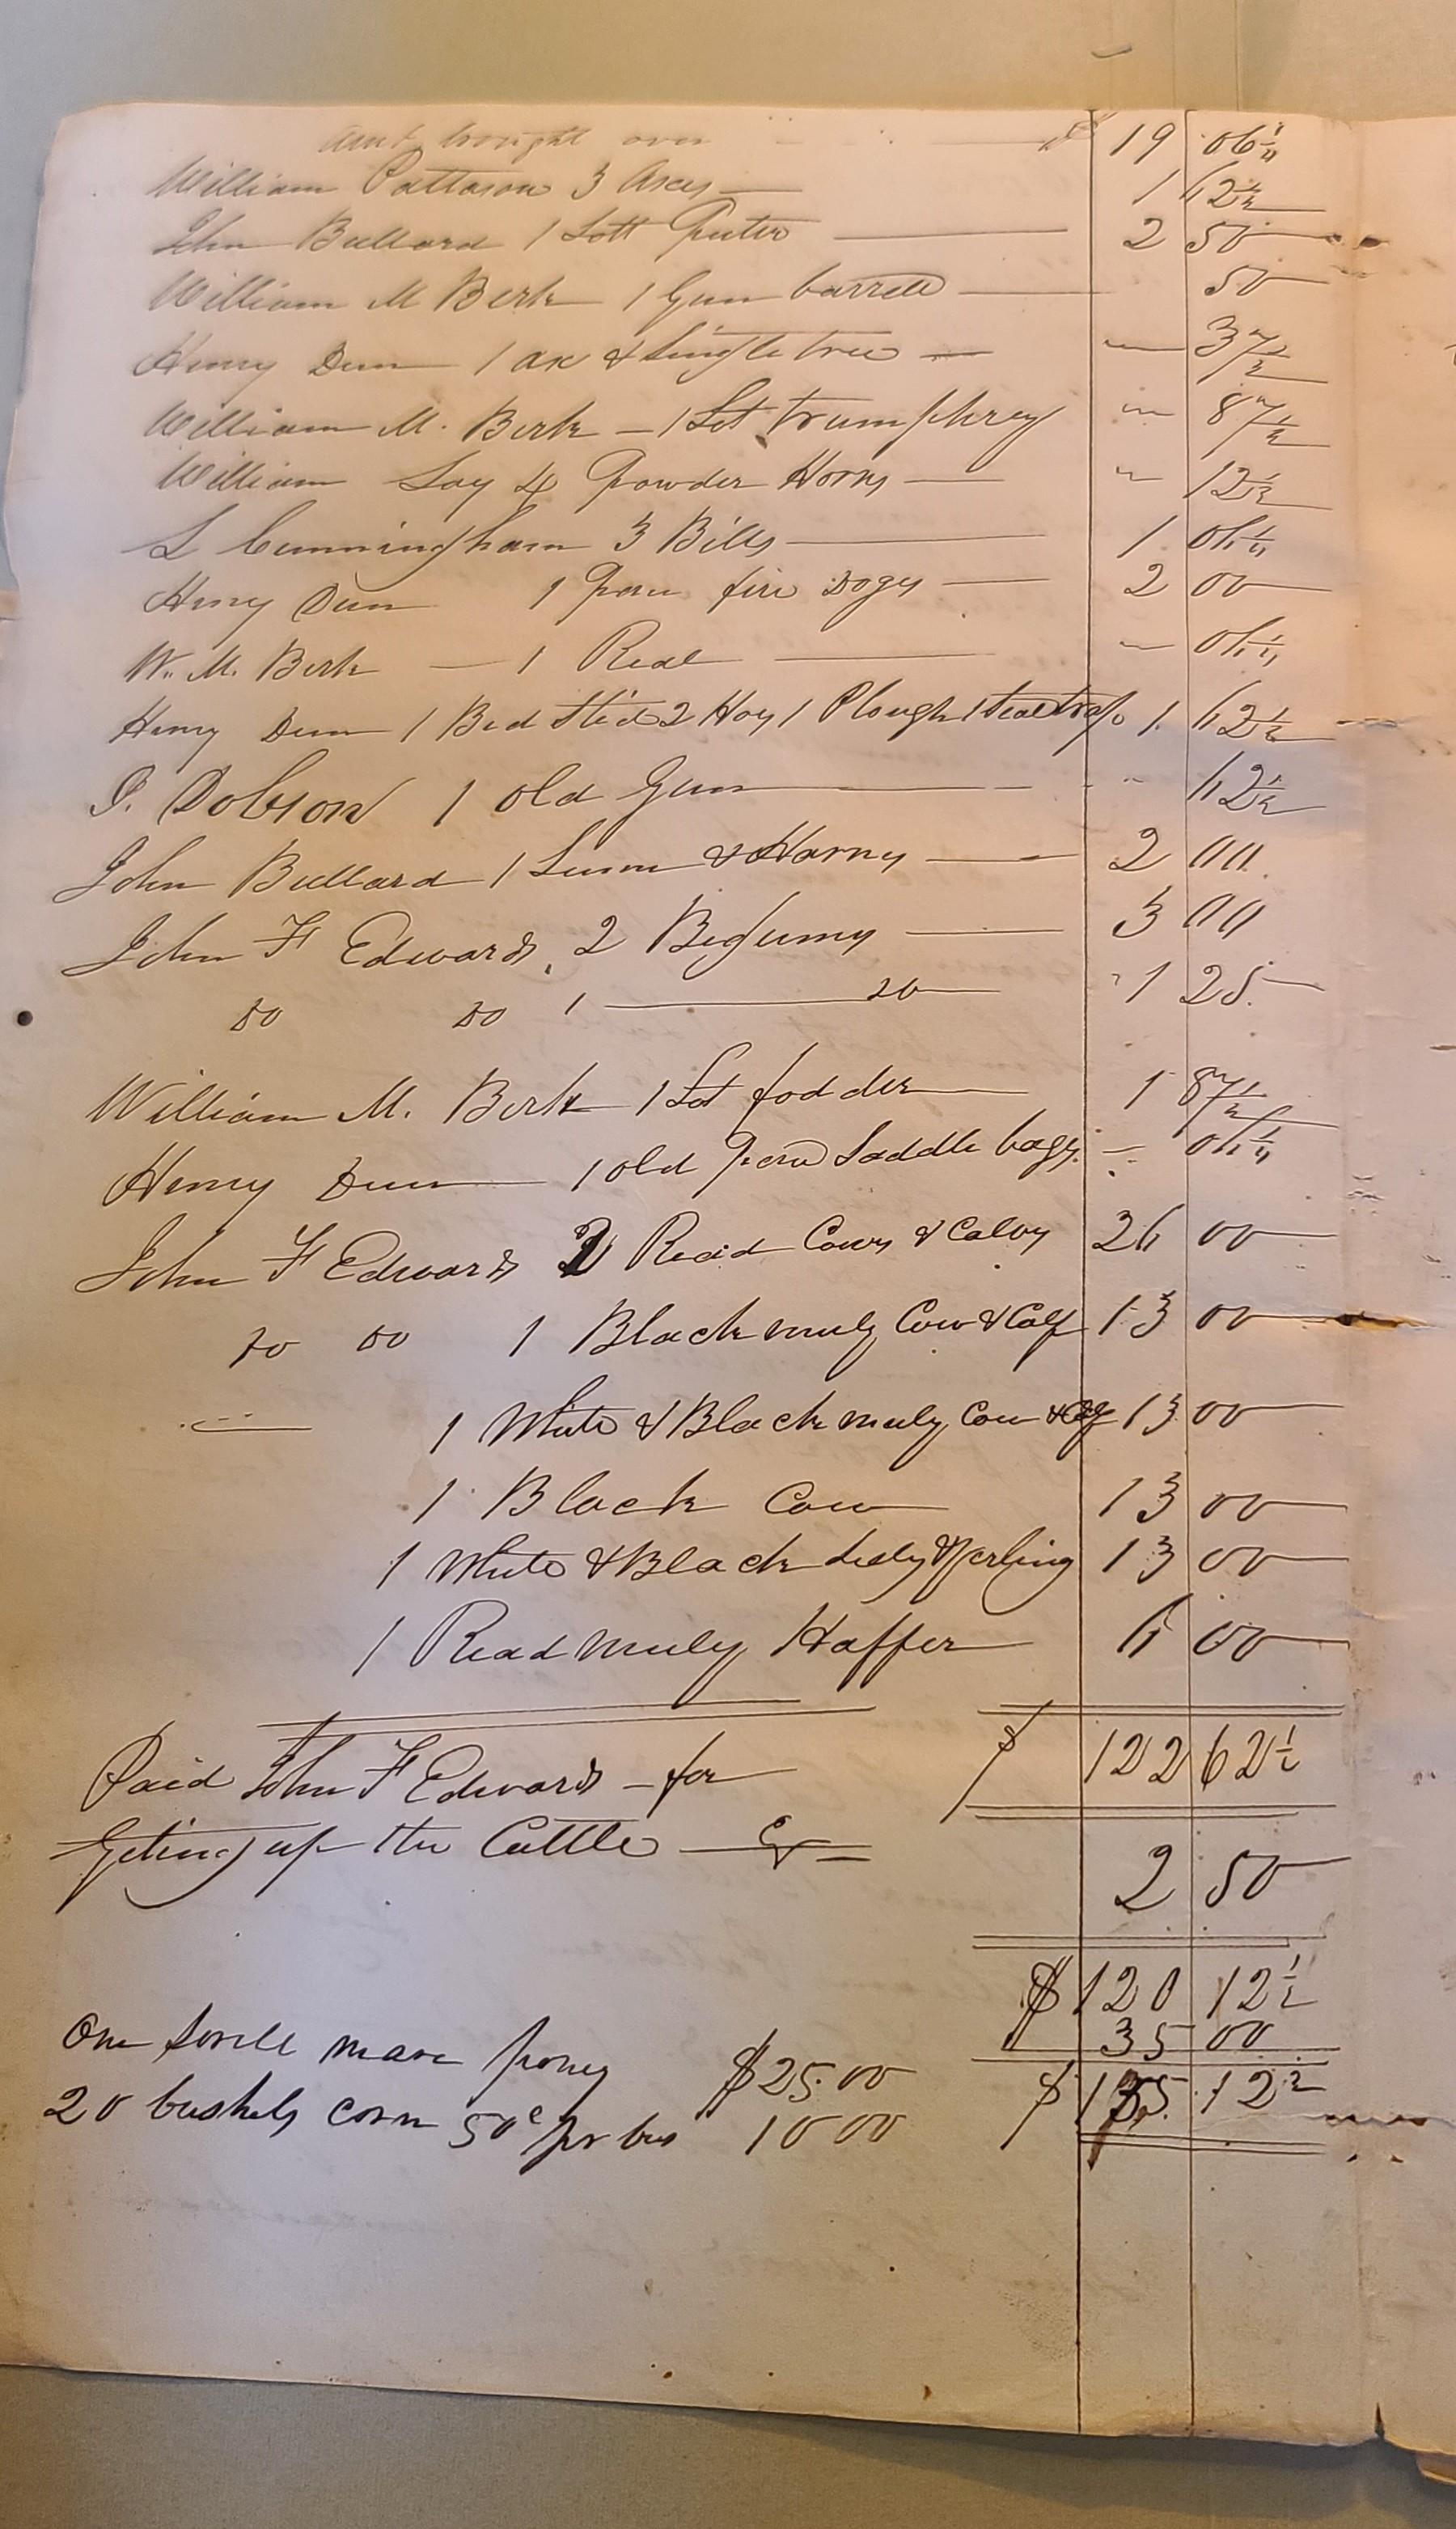 Amt brought over $ 19 06¼
William Pattason 3 Axes 1 62½
John Bullard 1 Lott Puter 2 50
William M Berk 1 Gun barrell 50
Henry Dun 1 ax & Singletree 37½
William M. Berk 1 Lot trumphrey 87½
William Loy 4 Powder Horns 12½
L Cunningham 3 Bills 1 06¼
Henry Dun 1 Pare fire Dogs 2 00
W. M. Berk 1 Real 06¼
Henry Dun 1 Bed Sted 2 Hoy 1 Plough 1 Steal trap 1 62½
J. Dobson 1 old Gun 62½
John Bullard 1 Lumm & Harny 2 00
John F Edwards, 2 Begums 3 00
Do Do 1 Do 1 25
William M. Berk 1 Lot fodder 1 87½
Henry Dun 1 old Pare Saddle bags 06¼
John F Edwards 2 Read Cows & Calvs 26 00
Do Do 1 Black muly Cow & Calf 13 00
1 White & Black muly Cow & Calf 13 00
1 Black Cow 13 00
1 White & Black & Yerling 13 00
1 Read muly Haffer 6 00
$ 122 62½
Paid John F Edwards for
Geting up the Cattle 2 50
$ 120 12½
35 00
One Sorell mare poney $25.00
$ 155. 12½
20 bushels corn 50c pr bus 10 00